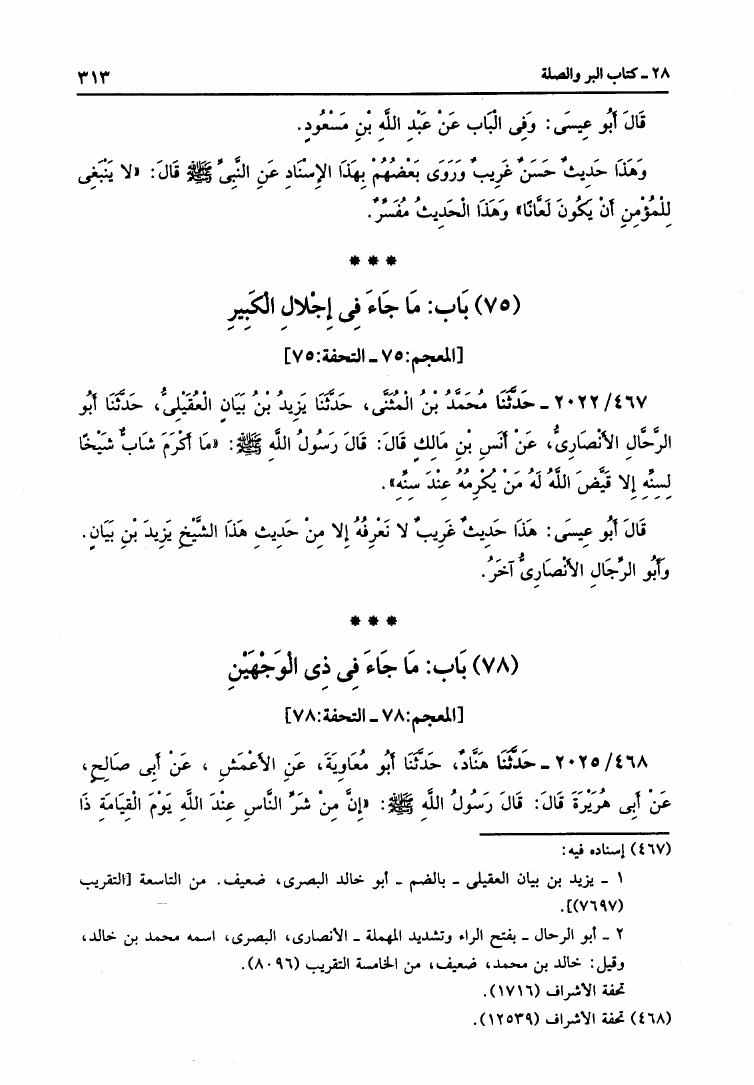 ٢٨ ـ كتاب البر والصلة ٣١٣
قَالَ أَبُو عِيسَى: وَفِى الْبَابِ عَنْ عَبْدِ اللَّهِ بْنِ مَسْعُودٍ.
وَهَذَا حَدِيثٌ حَسَنٌ غَرِيبٌ وَرَوَى بَعْضُهُمْ بِهَذَا الإِسْنَادِ عَنِ النَّبِىِّ ﷺ قَالَ: «لا يَنْبَغِى
لِلْمُؤْمِنِ أَنْ يَكُونَ لَعَّانًا» وَهَذَا الْحَدِيثُ مُفَسِّرٌ.
* * *
(٧٥) بَاب: مَا جَاءَ فِى إِجْلالِ الْكَبِيرِ
[المعجم:٧٥ ـ التحفة:٧٥]
٢٠٢٢/٤٦٧ ـ حَدَّثَنَا مُحَمَّدُ بْنُ الْمُثَنَّى، حَدَّثَنَا يَزِيدُ بْنُ بَيَانٍ الْعُقَيْلِىُّ، حَدَّثَنَا أَبُو
الرَّحَّالِ الأَنْصَارِىُّ، عَنْ أَنَسِ بْنِ مَالِكٍ قَالَ: قَالَ رَسُولُ اللَّهِ ﷺ: «مَا أَكْرَمَ شَابٌّ شَيْخًا
لِسِنِّهِ إِلا قَيَّضَ اللَّهُ لَهُ مَنْ يُكْرِمُهُ عِنْدَ سِنِّهِ».
قَالَ أَبُو عِيسَى: هَذَا حَدِيثٌ غَرِيبٌ لا نَعْرِفُهُ إِلا مِنْ حَدِيثِ هَذَا الشَّيْخِ يَزِيدَ بْنِ بَيَانٍ.
وَأَبُو الرِّجَالِ الأَنْصَارِىُّ آخَرُ.
* * *
(٧٨) بَاب: مَا جَاءَ فِى ذِى الْوَجْهَيْنِ
[المعجم:٧٨ ـ التحفة:٧٨]
٢٠٢٥/٤٦٨ ـ حَدَّثَنَا هَنَّادٌ، حَدَّثَنَا أَبُو مُعَاوِيَةَ، عَنِ الأَعْمَشِ ، عَنْ أَبِى صَالِحٍ،
عَنْ أَبِى هُرَيْرَةَ قَالَ: قَالَ رَسُولُ اللَّهِ ﷺ: «إِنَّ مِنْ شَرِّ النَّاسِ عِنْدَ اللَّهِ يَوْمَ الْقِيَامَةِ ذَا
(٤٦٧) إسناده فيه:
١ ـ يزيد بن بيان العقيلى ـ بالضم ـ أبو خالد البصرى، ضعيف. من التاسعة [التقريب
(٧٦٩٧)].
٢ ـ أبو الرحال ـ بفتح الراء وتشديد المهملة ـ الأنصارى، البصرى، اسمه محمد بن خالد،
وقيل: خالد بن محمد، ضعيف، من الخامسة التقريب (٨٠٩٦).
تحفة الأشراف (١٧١٦).
(٤٦٨) تحفة الأشراف (١٢٥٣٩).